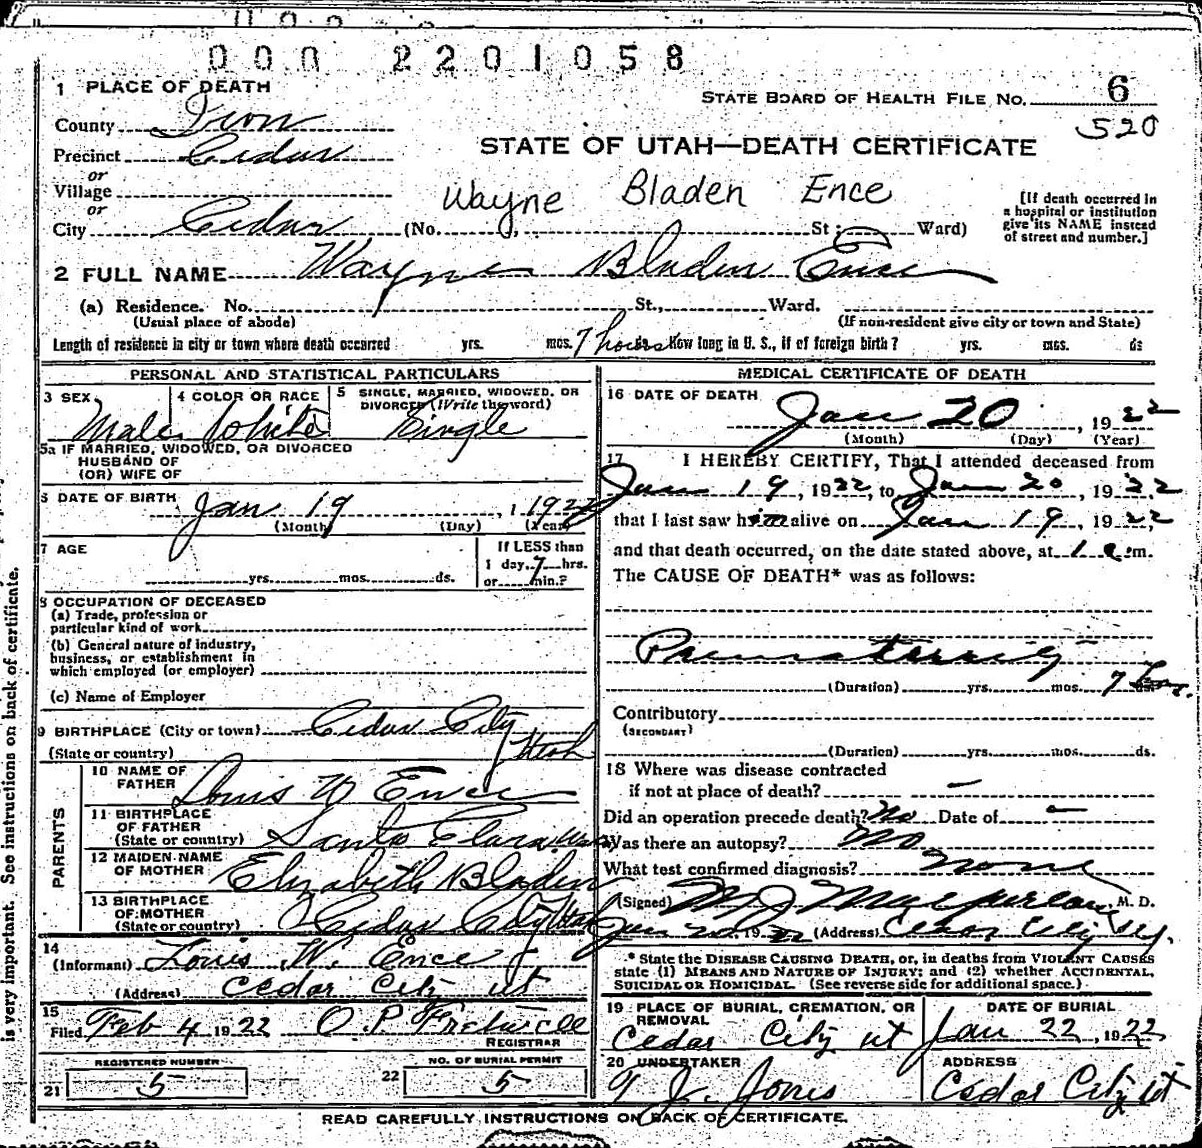 000 2201058
1 PLACE OF DEATH
STATE BOARD OF HEALTH FILE NO. 6
520
County Iron
STATE OF UTAH—DEATH CERTIFICATE
Precinct Cedar
or
Village
Wayne Bladen Ence
[If death occurred in a hospital or institution give its NAME instead of street and number.]
or
City Cedar (No. St; Ward)
2 FULL NAME Wayne Bladen Ence
(a) Residence. No. St., Ward.
(Usual place of abode) (If non-resident give city or town and State)
Length of residence in city or town where death occurred yrs. mos. 7 hours How long in U. S., if of foreign birth? yrs. mos. ds
PERSONAL AND STATISTICAL PARTICULARS
3 SEX Male
4 COLOR OR RACE White
5 SINGLE, MARRIED, WIDOWED, OR DIVORCED (Write the word) Single
5a IF MARRIED, WIDOWED, OR DIVORCED
HUSBAND OF
(OR) WIFE OF
6 DATE OF BIRTH Jan 19, 1922
(Month) (Day) (Year)
7 AGE yrs. mos. ds.
If LESS than
1 day, 7 hrs.
or min.?
8 OCCUPATION OF DECEASED
(a) Trade, profession or
particular kind of work
(b) General nature of industry,
business, or establishment in
which employed (or employer)
(c) Name of Employer
9 BIRTHPLACE (City or town) Cedar City
(State or country) Utah
PARENTS
10 NAME OF FATHER Louis W Ence
11 BIRTHPLACE OF FATHER (State or country) Santa Clara Utah
12 MAIDEN NAME OF MOTHER Elizabeth Bladen
13 BIRTHPLACE OF MOTHER (State or country) Cedar City Utah
14 (Informant) Louis W. Ence
(Address) Cedar City ut
15 Filed Feb 4 1922 O P Fretwell
REGISTRAR
REGISTERED NUMBER
21 5
NO. OF BURIAL PERMIT
22 5
MEDICAL CERTIFICATE OF DEATH
16 DATE OF DEATH
Jan 20, 1922
(Month) (Day) (Year)
17 I HEREBY CERTIFY, That I attended deceased from
Jan 19, 1922, to Jan 20, 1922
that I last saw him alive on Jan 19, 1922,
and that death occurred, on the date stated above, at 1 a.m.
The CAUSE OF DEATH* was as follows:
Prematurity
(Duration) yrs. mos. 7 hrs.
Contributory
(SECONDARY)
(Duration) yrs. mos. ds.
18 Where was disease contracted
if not at place of death? –
Did an operation precede death? No Date of –
Was there an autopsy? No
What test confirmed diagnosis? none
(Signed) M J Macfarlane, M. D.
Jan 20, 1922 (Address) Cedar City Ut.
* State the DISEASE CAUSING DEATH, or, in deaths from VIOLENT CAUSES
state (1) MEANS AND NATURE OF INJURY; and (2) whether ACCIDENTAL,
SUICIDAL OR HOMICIDAL. (See reverse side for additional space.)
19 PLACE OF BURIAL, CREMATION, OR REMOVAL
Cedar City ut
DATE OF BURIAL
Jan 22, 1922
20 UNDERTAKER
T J. Jones
ADDRESS
Cedar City ut
READ CAREFULLY INSTRUCTIONS ON BACK OF CERTIFICATE.
is very important. See instructions on back of certificate.